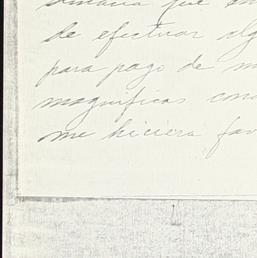 que
de efectuar alg
para pago de m
magnificas con
me hiciera fav